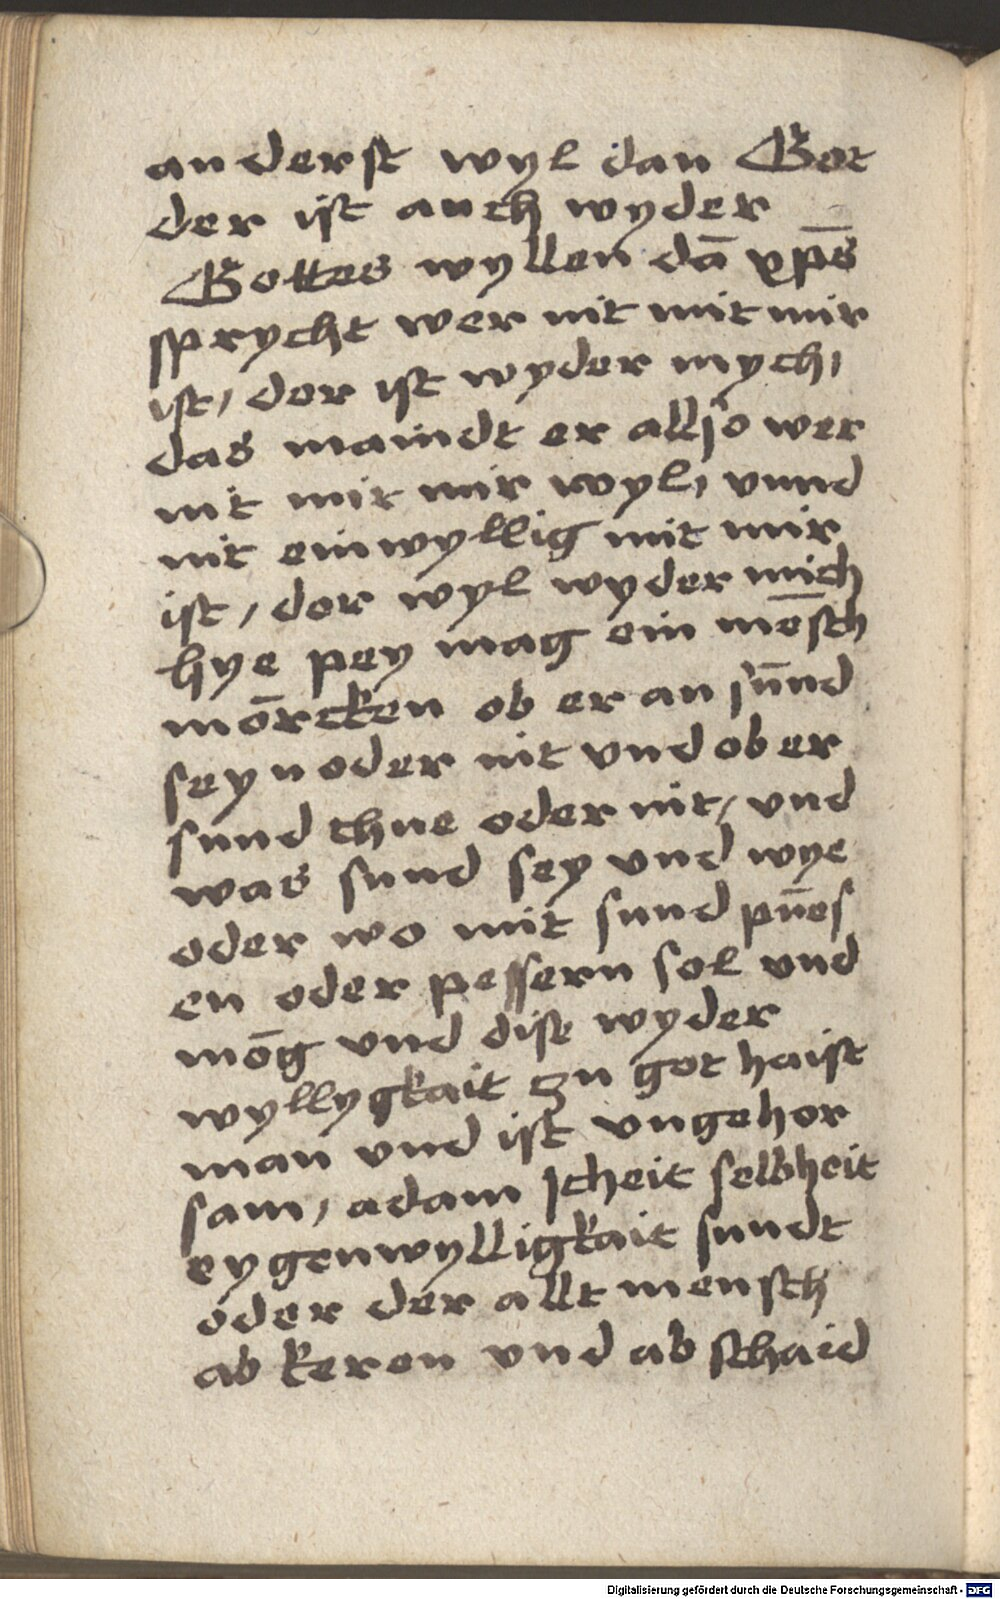 anderst wyl dan Got
der ist auch wyder
Gottes wyllen dā xp̄s
sprycht wer nit mit mir
ist, der ist wyder mych,
das maindt er allso wer
nit mit mir wyl, vnnd
nit einwyllig mit mir
ist, der wyl wyder mich
hye pey mag ein mēsch
mōrcken ob er an sūnd
seyn oder nit vnd ob er
sund thue oder nit, vnd
was sund sey vnd wye
oder wo mit sund pūes
en oder pessern sol vnd
mōg vnd dise wyder
wyllygkait zu got haist
man vnd ist vngehor
sam, adam Icheit selbheit
eygenwylligkait sundt
oder der allt mensch
ab keren vnd ab schaid
Digitalisierung gefördert durch die Deutsche Forschungsgemeinschaft - DFG